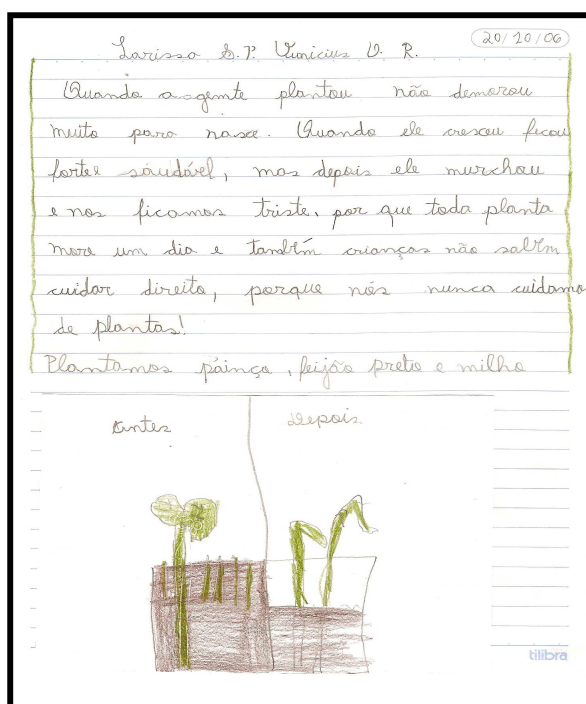 20/10/06
Larissa S. P. Vinicius V. R.
Quando a gente plantou não demorou
muito para nasce. Quando ele cresceu ficou
forte e saudável, mas depois ele murchou
e nos ficamos triste, por que toda planta
more um dia e também crianças não sabem
cuidar direito, porque nós nunca cuidamo
de plantas!
Plantamos painço, feijão preto e milho
Antes
Depois
tilibra